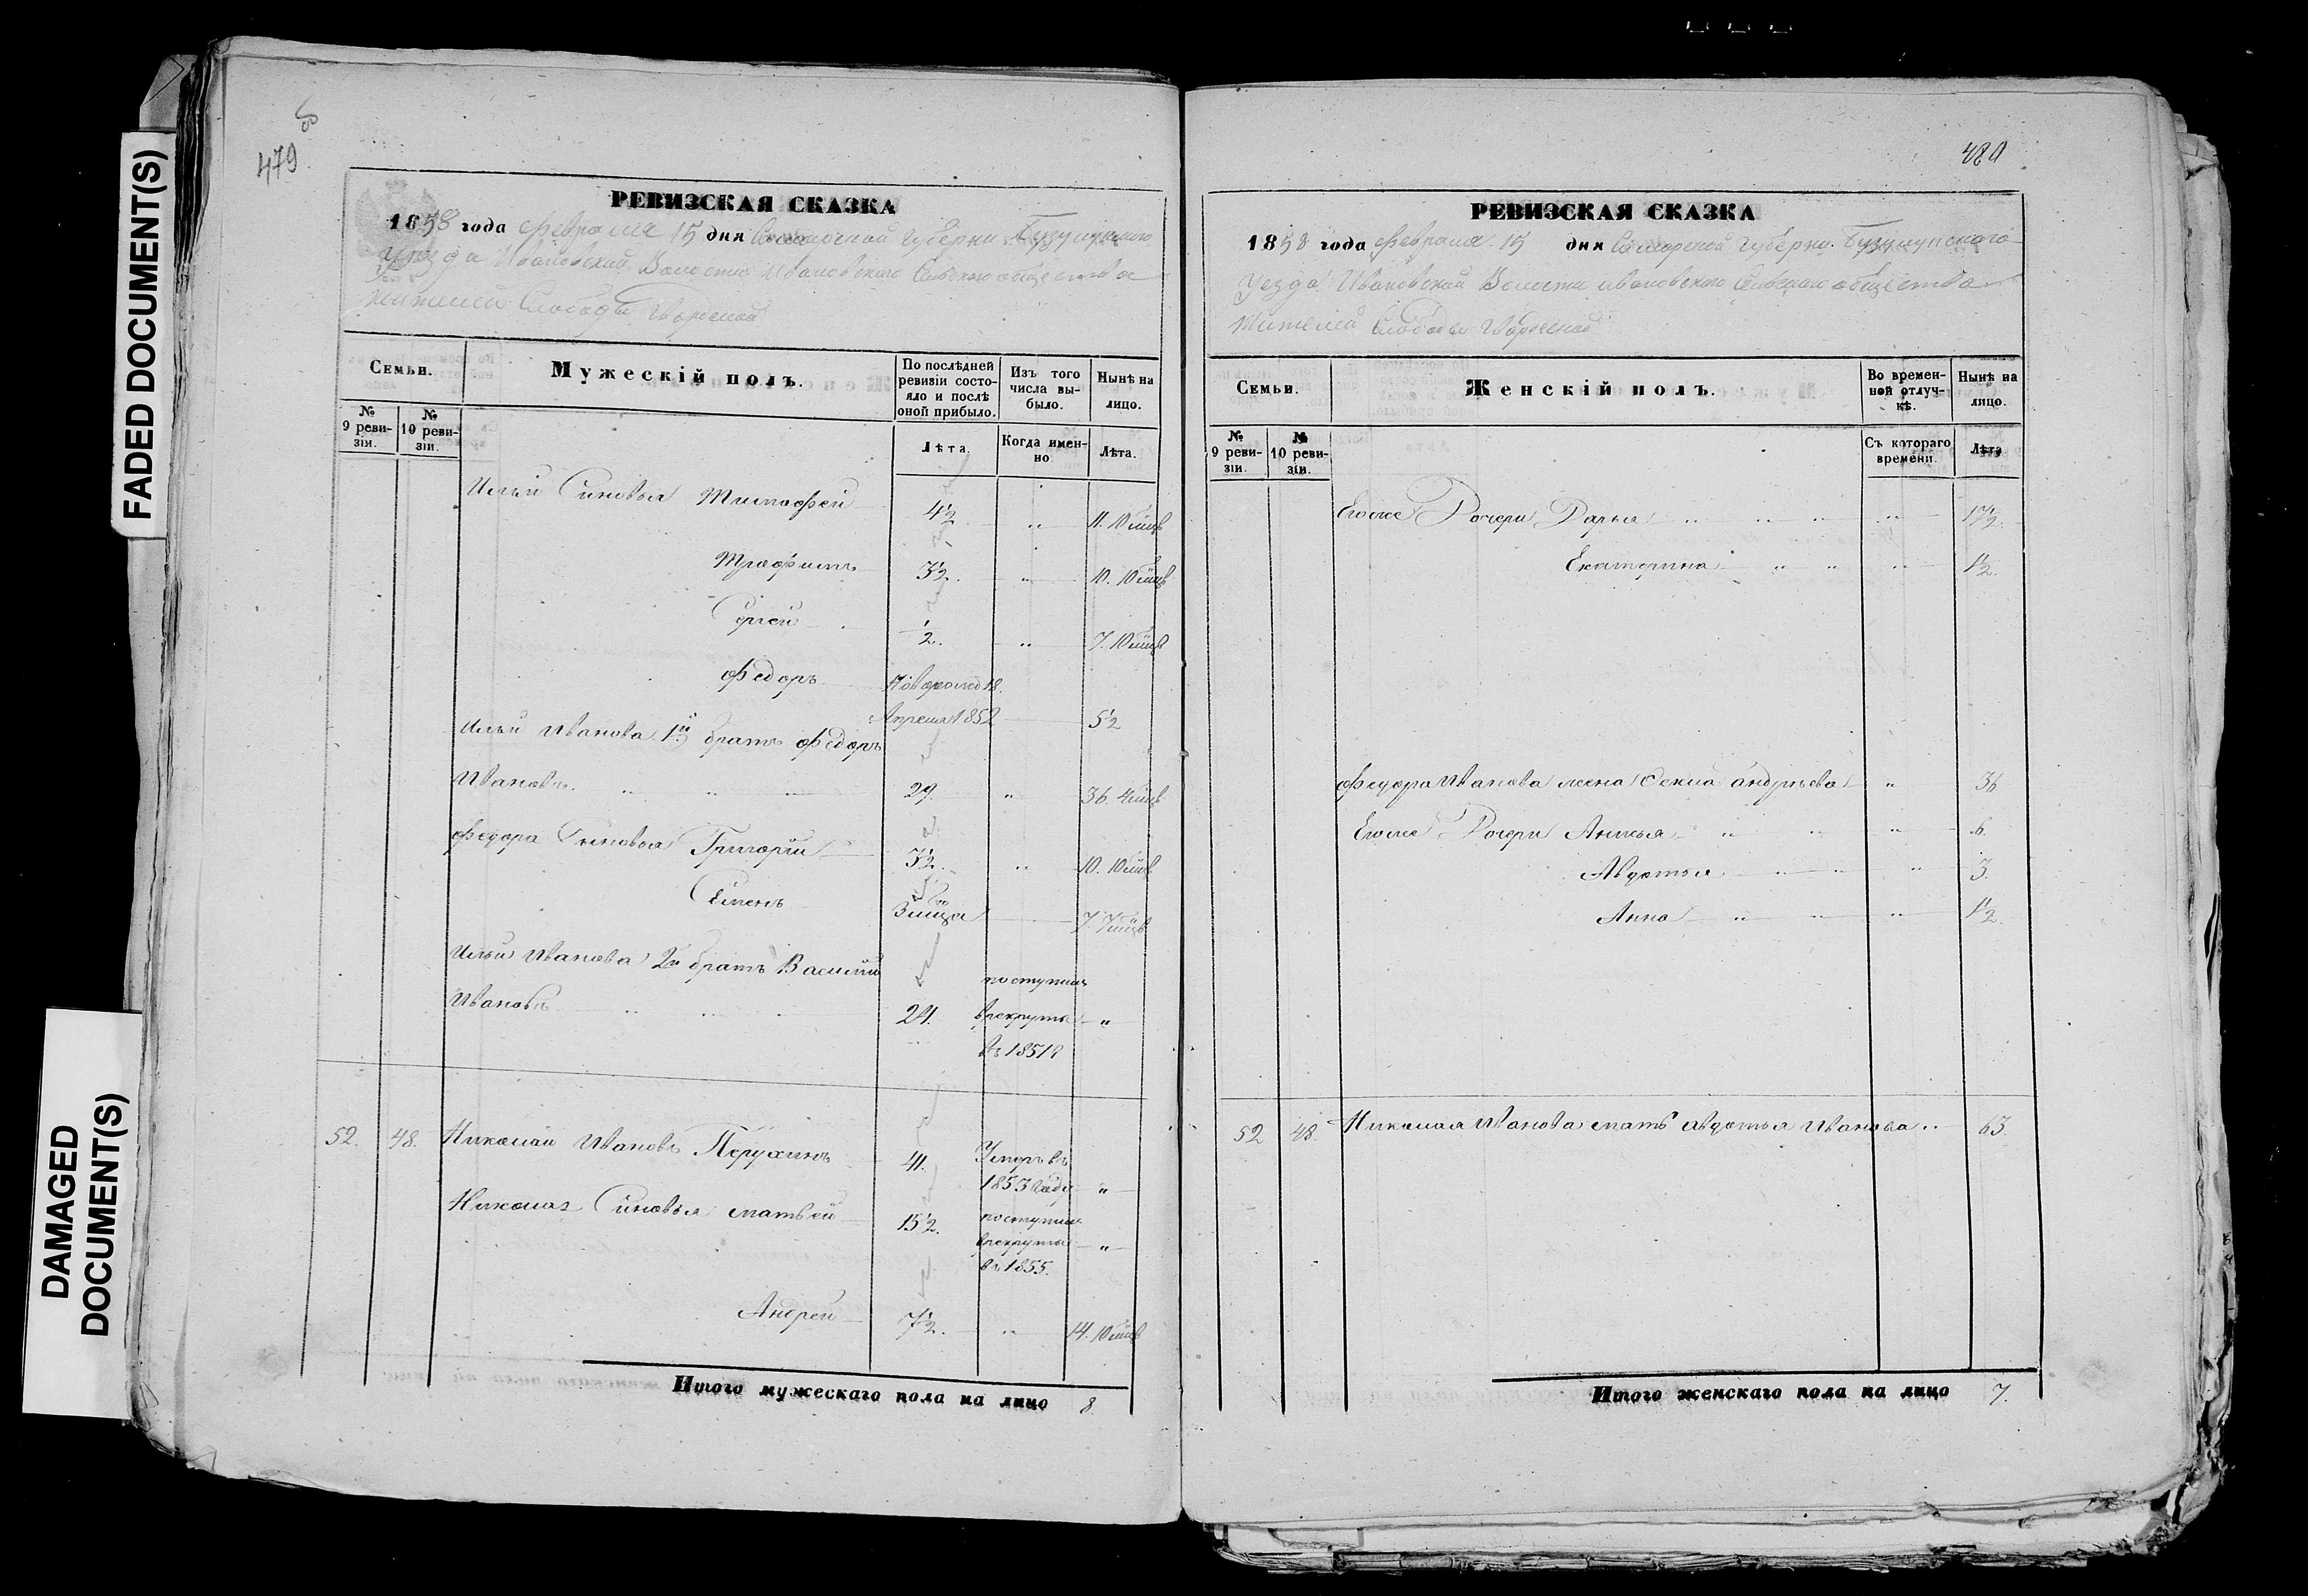 FADED DOCUMENT(S)
DAMAGED
DOCUMENT(S)
479
РЕВИЗСКАЯ СКАЗКА
1858 года Февраля 15 дня Самарской Губернии Бузулукскаго
Уезда Ивановской Волости Ивановского Сельскаго общества
жителей Слободы
Семьи.
Мужескій полъ.
По послѣдней ревизіи состояло и послѣ оной прибыло.
Изъ того числа выбыло.
Нынѣ на лицо.
№ 9 ревизіи.
№ 10 ревизіи.
Лѣта.
Когда именно
Лѣта.
Ильи Сыновья Тимофей 4½ " 11. 10 мцв
Трофимъ 3½. " 10. 10 мцв
Сергей ½. " 7. 10 мцв
Федоръ Новорожд 18.
Апреля 1852 5½
Ильи Иванова 1й братъ Федоръ
Ивановъ. " " 29. " 36. 4 мцв
Федора Сыновья Григорій 3½. " 10. 10 мцв
Семенъ 3 мцa 7. 7 мцв
Ильи Иванова 2й братъ Василий поступилъ
Ивановъ 24. врекруты "
въ 1851г
52. 48. Николай Ивановъ 41. Умеръ въ
1853 году "
Николая Сыновья Матвей 15½. поступилъ
врекруты "
въ 1855.
Андрей 7½. " 14. 10 мцв
Итого мужескаго пола на лицо 8
480
РЕВИЗСКАЯ СКАЗКА
1858 года Февраля 15 дня Самарской Губернии. Бузулукского
Уезда Ивановской Волости Ивановского Сельскаго общества
жителей Слободы
Семьи.
Женскій полъ.
Во временной отлучкѣ.
Нынѣ на лицо.
№ 9 ревизіи.
№ 10 ревизіи.
Съ котораго времени.
Лѣта
Егоже Дочери Дарья " " " " 17½.
Екатерина " " " 1½.
Федора Иванова жена Андреева " 36
Егоже Дочери Анисья " " " 6.
Авдотья " " " 3.
Анна " " " 1½.
52 48. Николая Иванова мать Авдотья Иванова " 63.
Итого женскаго пола на лицо 7.